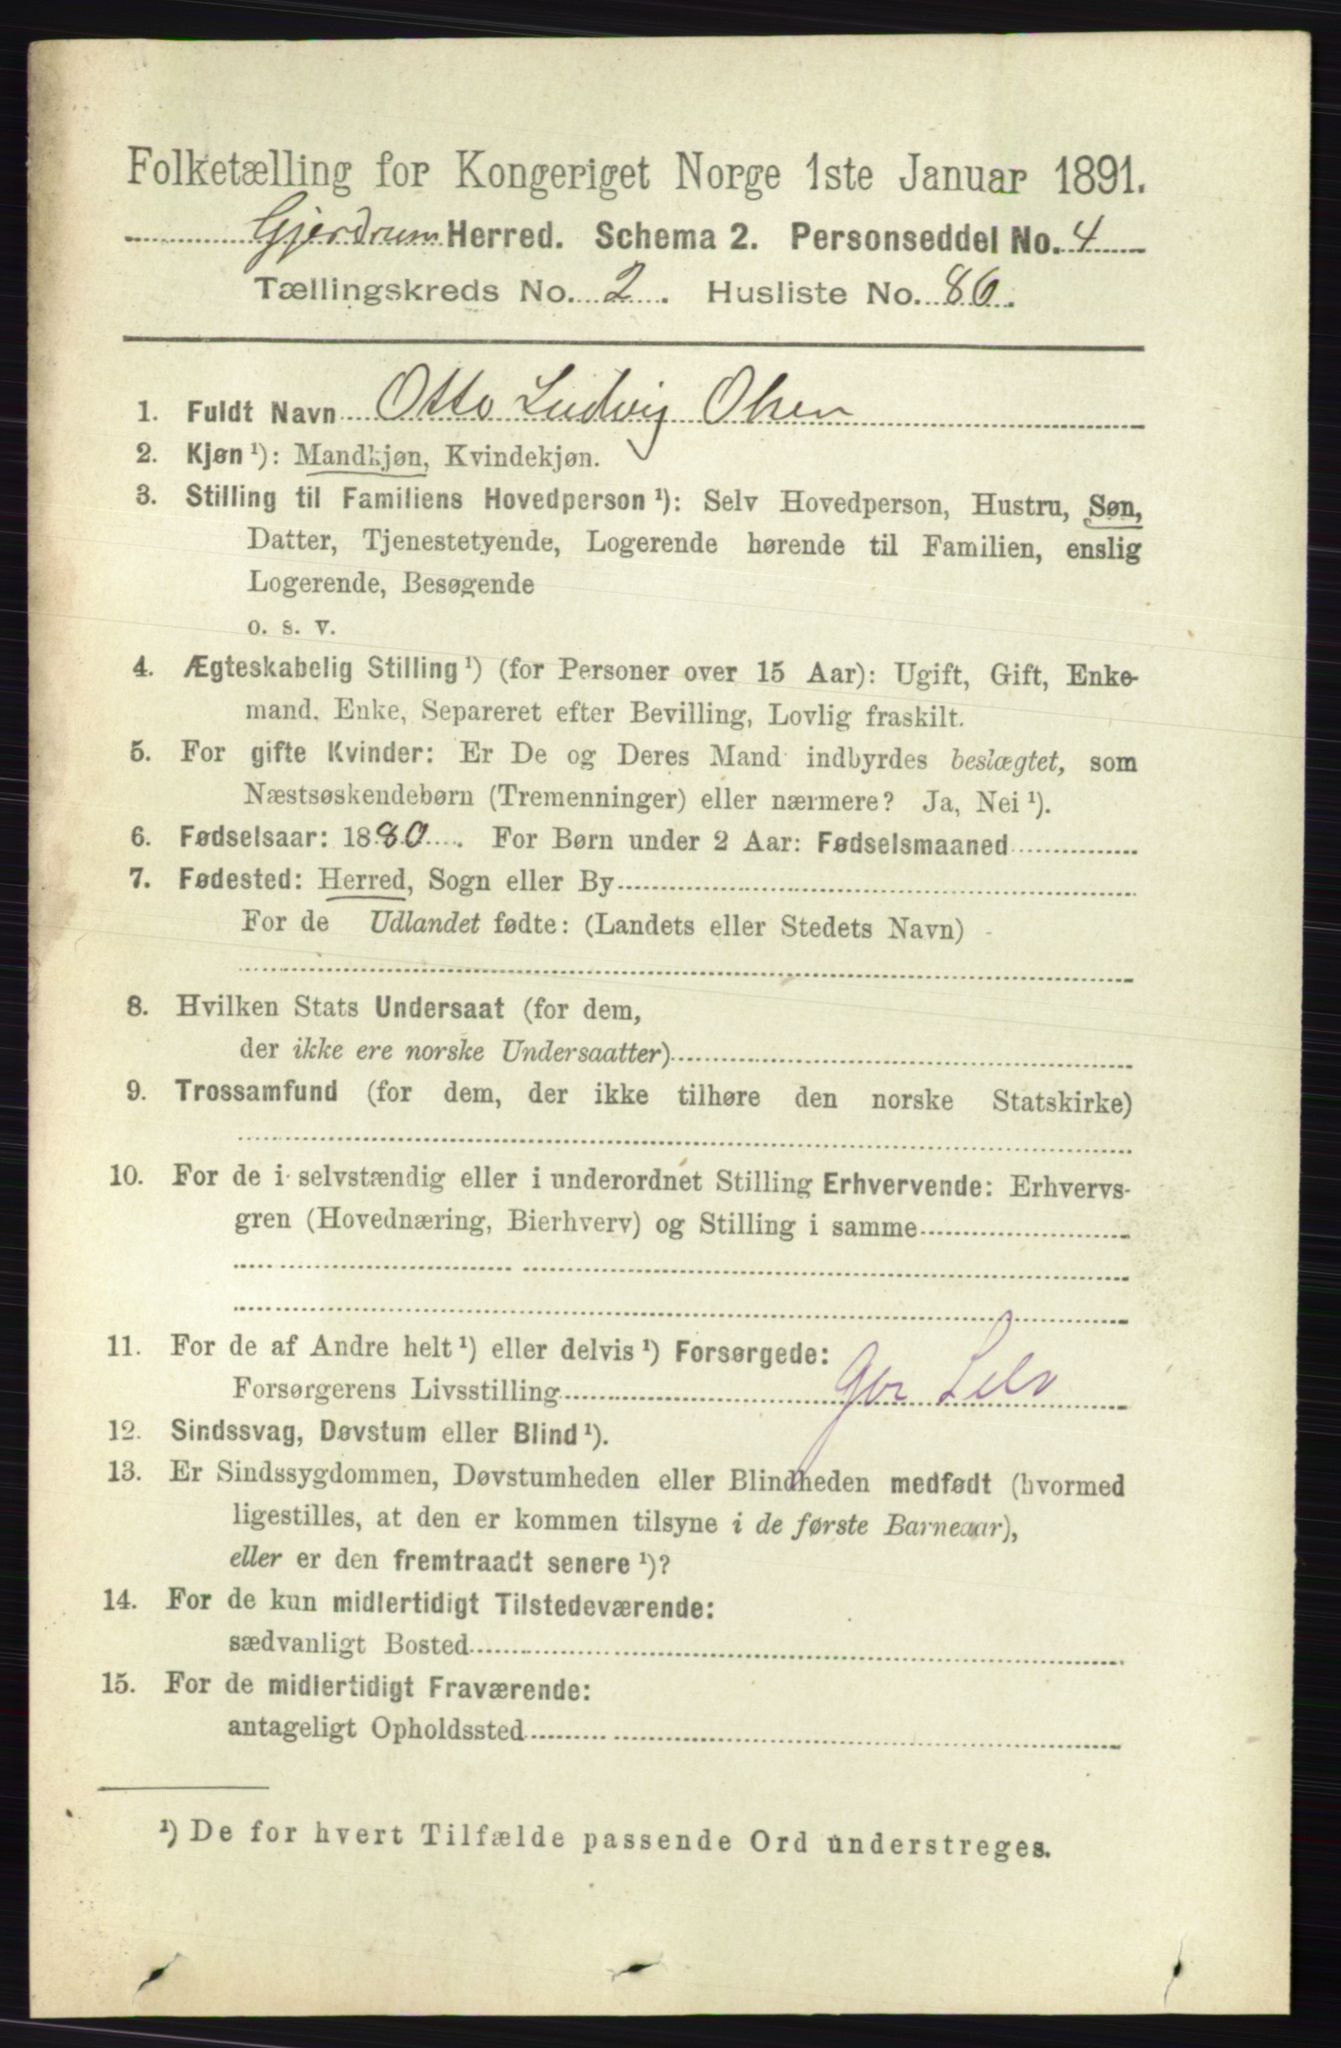 Folketælling for Kongeriget Norge 1ste Januar 1891.
Gjerdrum Herred. Schema 2. Personseddel No. 4
Tællingskreds No. 2. Husliste No. 86.
1. Fuldt Navn Otto Ludvig Olsen
2. Kjøn ¹): Mandkjøn, Kvindekjøn.
3. Stilling til Familiens Hovedperson ¹): Selv Hovedperson, Hustru, Søn,
Datter, Tjenestetyende, Logerende hørende til Familien, enslig
Logerende, Besøgende
o. s. v.
4. Ægteskabelig Stilling ¹) (for Personer over 15 Aar): Ugift, Gift, Enke-
mand, Enke, Separeret efter Bevilling, Lovlig fraskilt.
5. For gifte Kvinder: Er De og Deres Mand indbyrdes beslægtet, som
Næstsøskendebørn (Tremenninger) eller nærmere? Ja, Nei ¹).
6. Fødselsaar: 1880. For Børn under 2 Aar: Fødselsmaaned
7. Fødested: Herred, Sogn eller By
For de Udlandet fødte: (Landets eller Stedets Navn)
8. Hvilken Stats Undersaat (for dem,
der ikke ere norske Undersaatter)
9. Trossamfund (for dem, der ikke tilhøre den norske Statskirke)
10. For de i selvstændig eller i underordnet Stilling Erhvervende: Erhvervs-
gren (Hovednæring, Bierhverv) og Stilling i samme
11. For de af Andre helt ¹) eller delvis ¹) Forsørgede:
Forsørgerens Livsstilling
12. Sindssvag, Døvstum eller Blind ¹).
13. Er Sindssygdommen, Døvstumheden eller Blindheden medfødt (hvormed
ligestilles, at den er kommen tilsyne i de første Barneaar),
eller er den fremtraadt senere ¹)?
14. For de kun midlertidigt Tilstedeværende:
sædvanligt Bosted
15. For de midlertidigt Fraværende:
antageligt Opholdssted
¹) De for hvert Tilfælde passende Ord understreges.